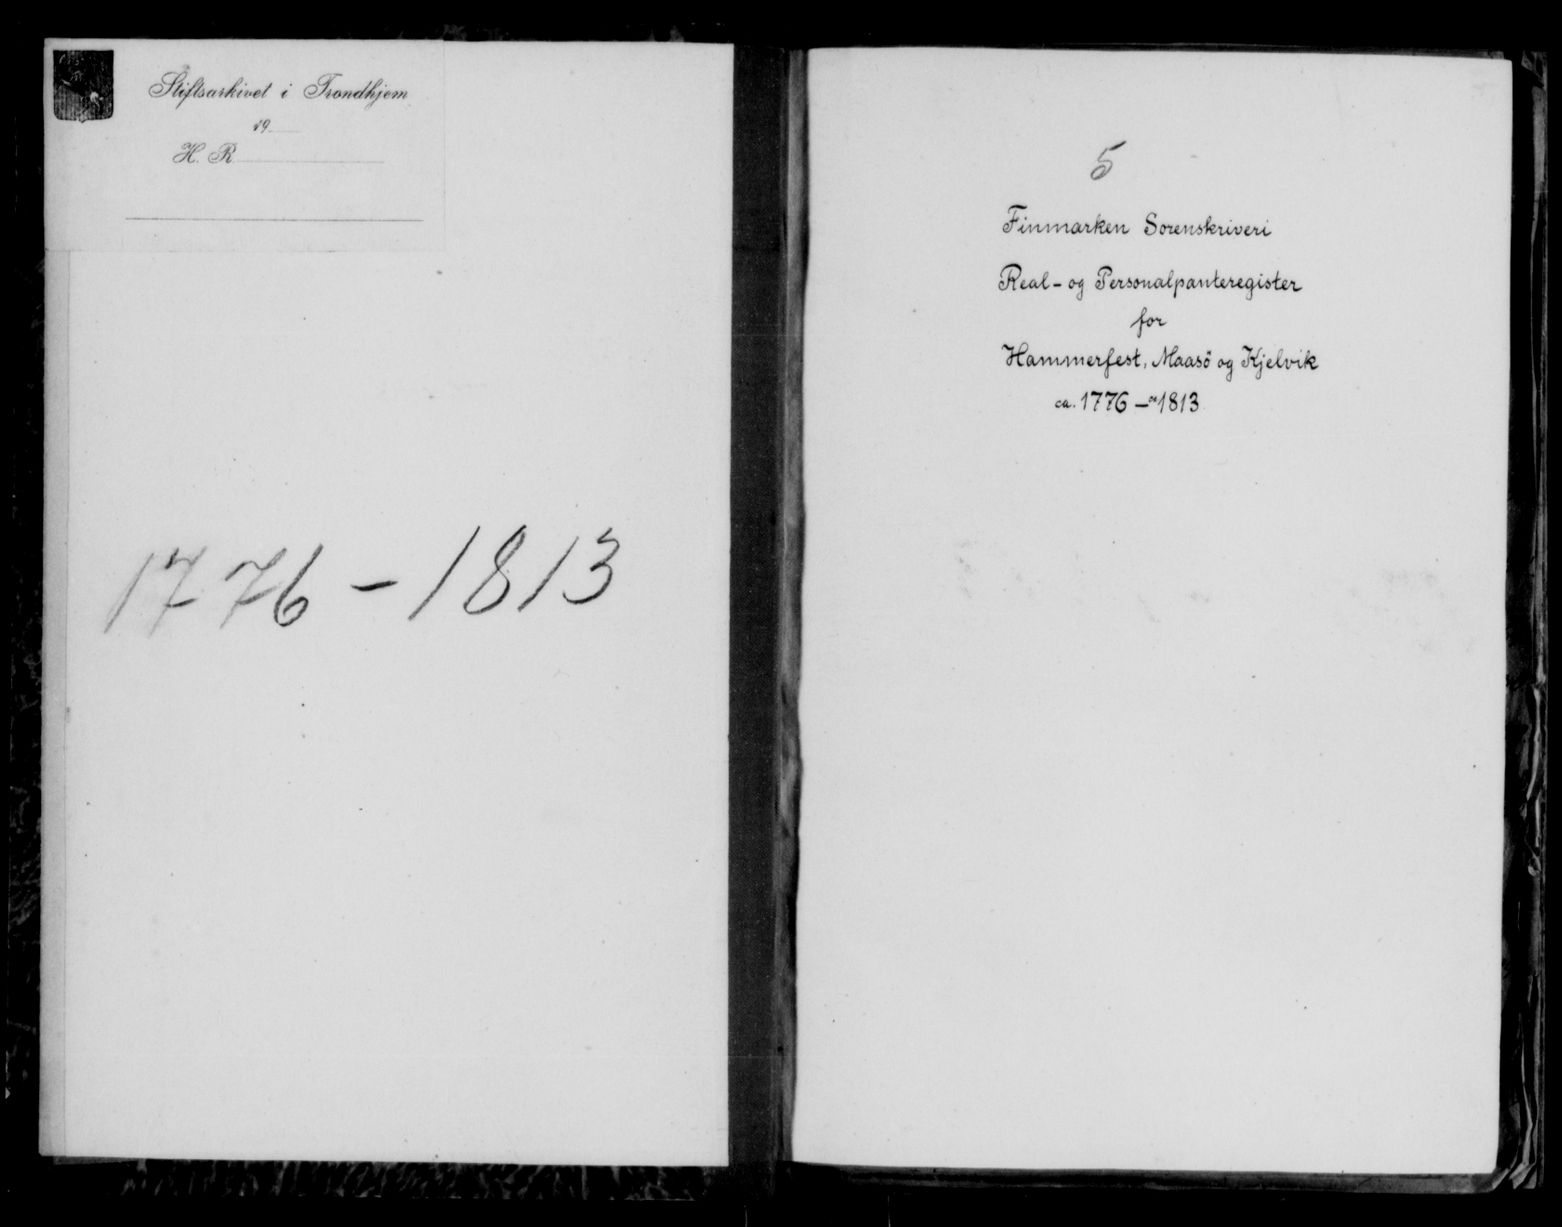 Stiftsarkivet i Trondhjem
19
H. R.
1776 - 1813
5
Finmarken Sorenskriveri
Real- og Personalpanteregister
for
Hammerfest, Maasö og Kjelvik
ca. 1776 - ca 1813